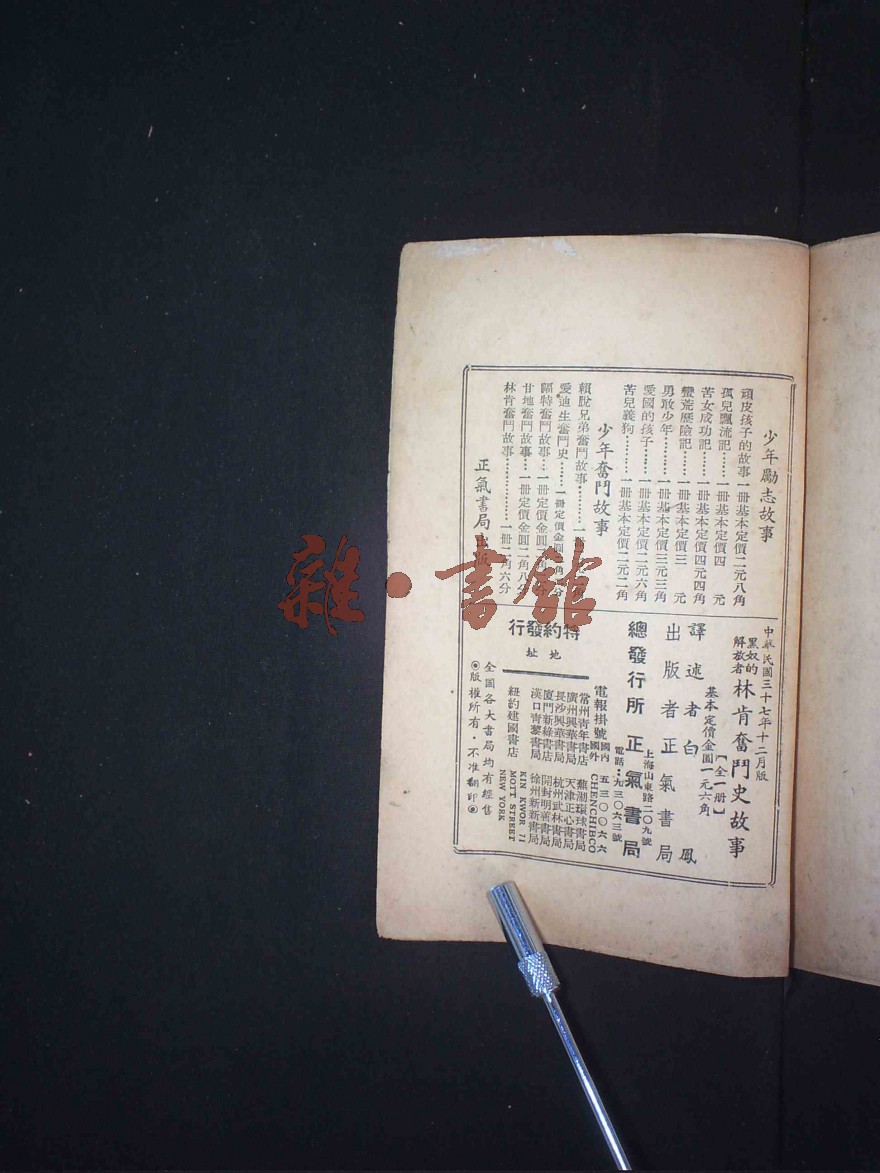 少年勵志故事
頑皮孩子的故事 一冊基本定價二元八角
孤兒飄流記…… 一冊基本定價四 元
苦女成功記…… 一冊基本定價四元四角
蠻荒歷險記…… 一冊基本定價三 元
勇敢少年……… 一冊基本定價三元三角
愛國的孩子…… 一冊基本定價二元六角
苦兒義狗……… 一冊基本定價二元二角
少年奮鬥故事
賴脫兄弟奮鬥故事……… 一冊
愛迪生奮鬥史…… 一冊定價金圓 角 分
福特奮鬥故事… 一冊定價金圓 角 分
甘地奮鬥故事… 一冊定價金圓二角八分
林肯奮鬥故事………… 一冊二角六分
正氣書局出版
中華民國三十七年十二月版
黑奴的解放者 林肯奮鬥史故事
【全一冊】
基本定價金圓一元六角
譯述者 白鳳
出版者 正氣書局
總發行所 正氣書局
上海山東路二〇九號
電話:九三〇六三號
電報掛號 國內 五三〇〇六六
國外 CHENCHIBCO
特約發行
地址
常州青年書店 蕪湖環球書局
廣州興華書局 天津正心書局
長沙興華書局 杭州武林書局
廈門新綠書店 開封明善書局
漢口青藜書局 徐州新新書局
紐約建國書店 KIN KWOR 71
MOTT STREET
NEW YORK
全國各大書局均有經售
◎版權所有·不准翻印◎
雜·書館